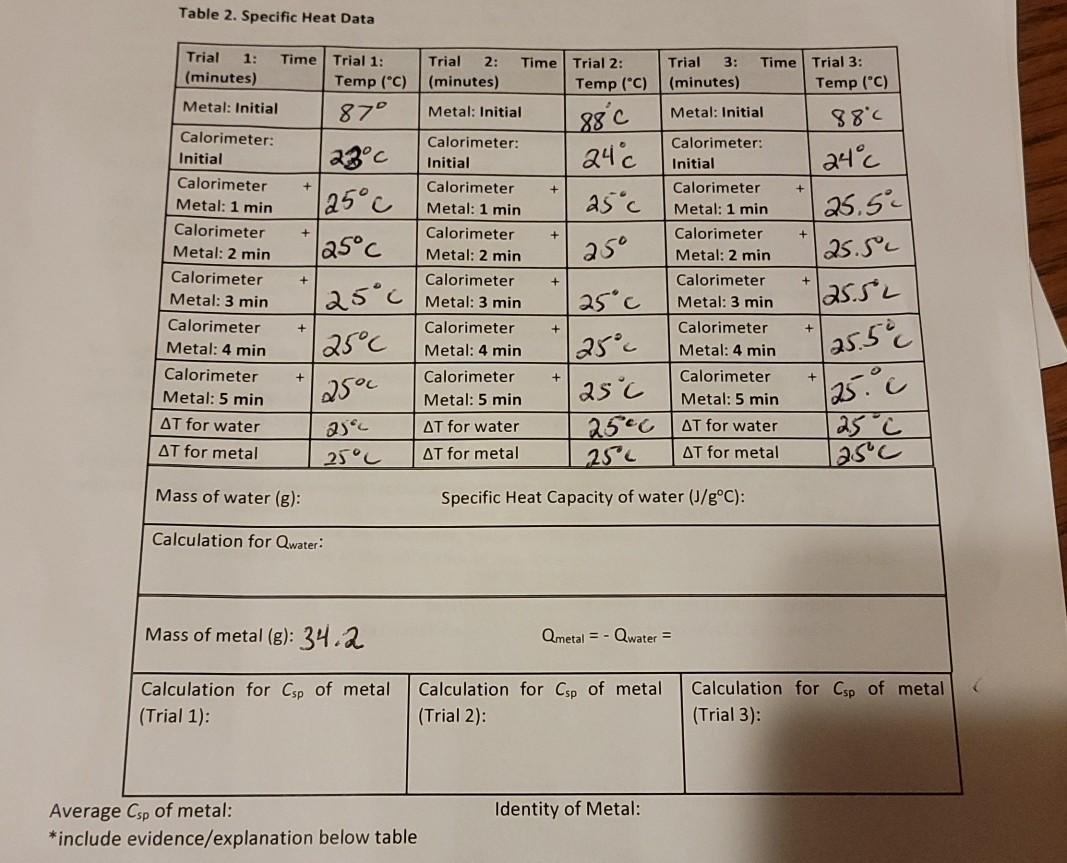 Table 2. Specific Heat Data
Trial 1: Time (minutes) Trial 1: Temp (°C) Trial 2: Time (minutes) Trial 2: Temp (°C) Trial 3: Time (minutes) Trial 3: Temp (°C)
Metal: Initial 87° Metal: Initial 88°C Metal: Initial 88°C
Calorimeter: Initial 23°C Calorimeter: Initial 24°C Calorimeter: Initial 24°C
Calorimeter + Metal: 1 min 25°C Calorimeter + Metal: 1 min 25°C Calorimeter + Metal: 1 min 25.5°C
Calorimeter + Metal: 2 min 25°C Calorimeter + Metal: 2 min 25° Calorimeter + Metal: 2 min 25.5°C
Calorimeter + Metal: 3 min 25°C Calorimeter + Metal: 3 min 25°C Calorimeter + Metal: 3 min 25.5°C
Calorimeter + Metal: 4 min 25°C Calorimeter + Metal: 4 min 25°C Calorimeter + Metal: 4 min 25.5°C
Calorimeter + Metal: 5 min 25°C Calorimeter + Metal: 5 min 25°C Calorimeter + Metal: 5 min 25.°C
ΔT for water 25°C ΔT for water 25°C ΔT for water 25°C
ΔT for metal 25°C ΔT for metal 25°C ΔT for metal 25°C
Mass of water (g): Specific Heat Capacity of water (J/g°C):
Calculation for Qwater:
Mass of metal (g): 34.2 Qmetal = - Qwater =
Calculation for Csp of metal (Trial 1): Calculation for Csp of metal (Trial 2): Calculation for Csp of metal (Trial 3):
Average Csp of metal: Identity of Metal:
*include evidence/explanation below table